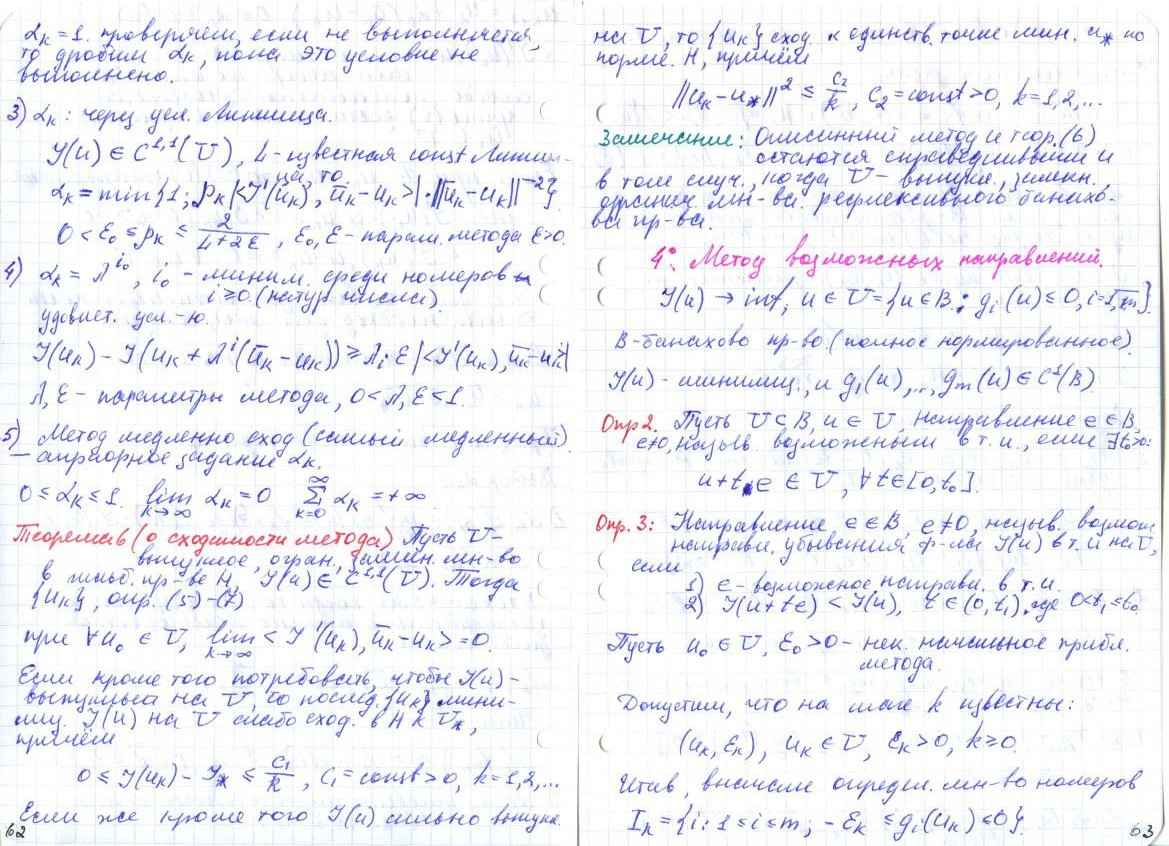 αₖ = 1. проверяем, если не выполняется,
то дробим αₖ, пока это условие не
выполнено.
3) αₖ: через усл. Липшица.
J(u) ∈ C¹,¹(U), L - известная const Липши-
ца, то
αₖ = min{1; ρₖ |<J'(uₖ), ūₖ - uₖ>| · ||ūₖ - uₖ||⁻²}
0 < ε₀ ≤ ρₖ ≤ 2/(L + 2ε), ε₀, ε - парам. метода ε > 0.
4) αₖ = λ^{i₀}, i₀ - миним. среди номеров
i ≥ 0 (натур числа)
удовлет. усл-ю.
J(uₖ) - J(uₖ + λⁱ(ūₖ - uₖ)) ≥ λⁱ ε |<J'(uₖ), ūₖ - uₖ>|
λ, ε - параметры метода, 0 < λ, ε < 1.
5) Метод медленно сход (самый медленный)
— априорное задание αₖ.
0 ≤ αₖ ≤ 1. lim_{k→∞} αₖ = 0 ∑_{k=0}^{∞} αₖ = +∞
Теорема 6 (о сходимости метода) Пусть U -
выпуклое, огран, замкн. мн-во
в гильб. пр-ве H, J(u) ∈ C¹,¹(U). Тогда
{uₖ}, опр. (5)-(7)
при ∀ u₀ ∈ U, lim_{k→∞} <J'(uₖ), ūₖ - uₖ> = 0.
Если кроме того потребовать, чтобы J(u) -
выпуклая на U, то послед. {uₖ} мини-
миз. J(u) на U слабо сход. в H к U*,
причём
0 ≤ J(uₖ) - J* ≤ C₁/k, C₁ = const > 0, k = 1,2,...
Если же кроме того J(u) сильно выпукл.
62
на U, то {uₖ} сход. к единств. точке мин. u* по
норме H, причём
||uₖ - u*||² ≤ C₂/k, C₂ = const > 0, k = 1,2,...
Замечание: Описанный метод и теор. (6)
остаются справедливыми и
в том случ., когда U - выпукл., замкн.,
огранич мн-ва. рефлексивного банахо-
ва пр-ва.
4°. Метод возможных направлений.
J(u) → inf, u ∈ U = {u ∈ B : gᵢ(u) ≤ 0, i = 1,m}.
B - банахово пр-во (полное нормированное).
J(u) - минимиз., и g₁(u),..., gₘ(u) ∈ C¹(B)
Опр 2. Пусть U ⊆ B, u ∈ U, направление e ∈ B,
e≠0, назыв. возможным в т. u, если ∃ t₀>0:
u + te ∈ U, ∀ t ∈ [0, t₀].
Опр. 3: Направление, e ∈ B, e ≠ 0, назыв. возмож
направл. убывания ф-ии J(u) в т. u на U,
если
1) e - возможное направл. в т. u.
2) J(u + te) < J(u), t ∈ (0, t₁), где 0 < t₁ ≤ t₀.
Пусть u₀ ∈ U, ε₀ > 0 - нек. начальное прибл.
метода.
Допустим, что на шаге k известны:
(uₖ, εₖ), uₖ ∈ U, εₖ > 0, k ≥ 0.
Итак, вначале определ. мн-во номеров
Iₖ = {i : 1 ≤ i ≤ m; - εₖ ≤ gᵢ(uₖ) ≤ 0}.
63